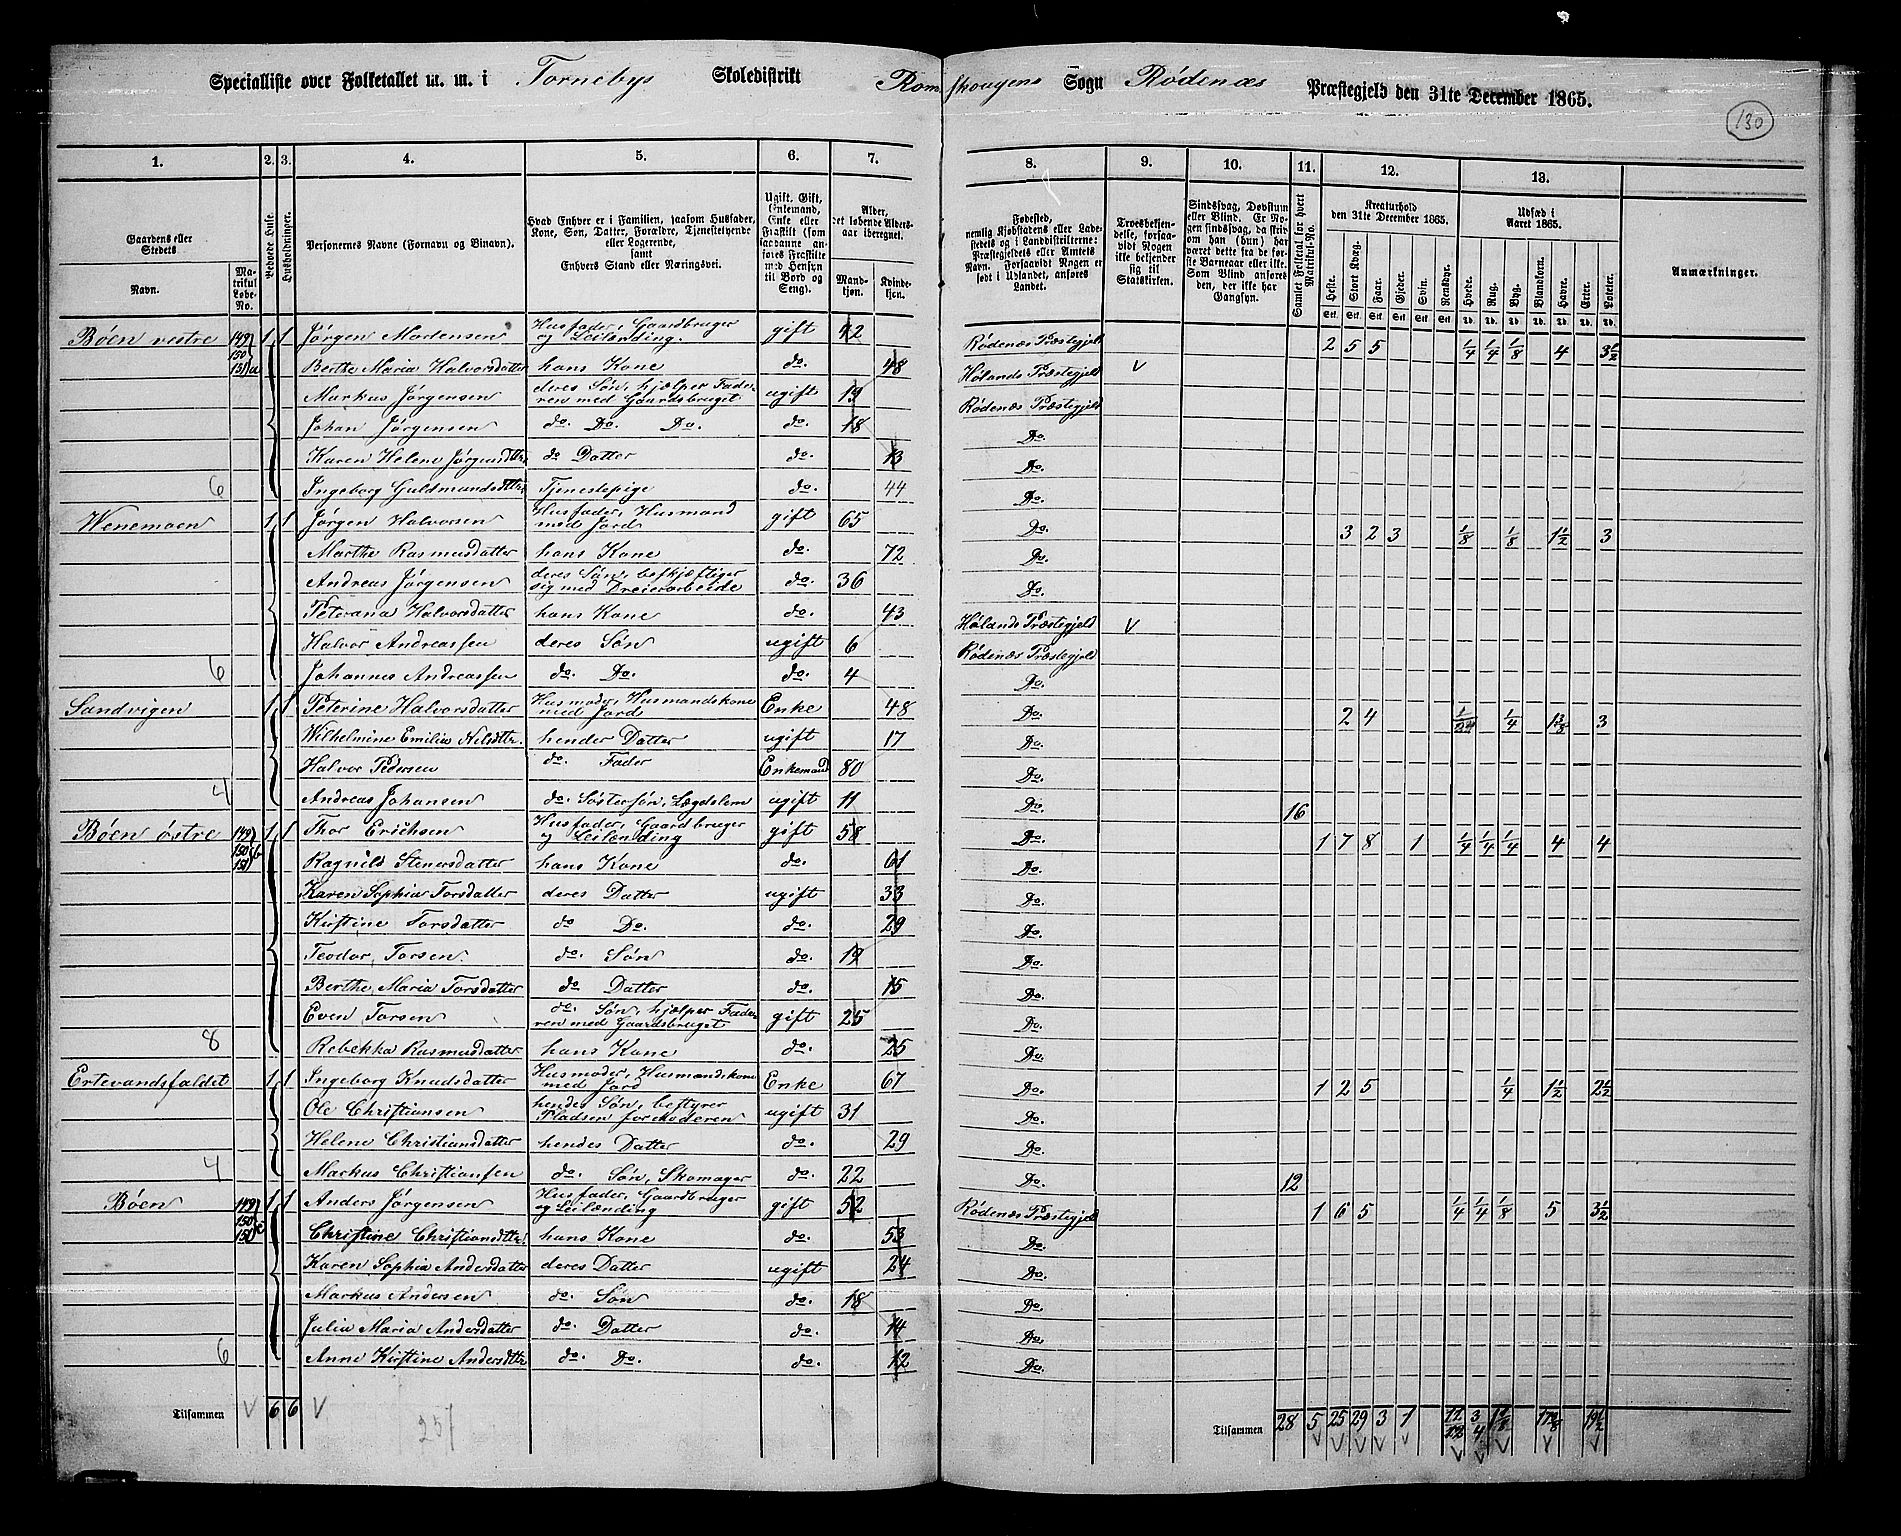 Specialliste over Folketallet m. m. i Tornebys Skoledistrikt Romskougens Sogn Rødenæs Præstegjeld den 31te December 1865.
130
1. 2. 3. 4. 5. 6. 7. 8. 9. 10. 11. 12. 13.
Gaardens eller Stedets
Navn.
Matrikul Løbe-No.
Beboede Huse.
Husholdninger.
Personernes Navne (Fornavn og Binavn).
Hvad Enhver er i Familien, saasom Husfader, Kone, Søn, Datter, Forældre, Tjenestetyende eller Logerende, samt Enhvers Stand eller Næringsvei.
Ugift, Gift, Enkemand, Enke eller Fraskilt (som saadanne anføres Fraskilte med Hensyn til Bord og Seng).
Alder, det løbende Aldersaar iberegnet.
Mandkjøn. Kvindekjøn.
Fødested, nemlig Kjøbstadens eller Ladestedets og i Landdistrikterne: Præstegjeldets eller Amtets Navn. Forsaavidt Nogen er født i Udlandet, anføres Landet.
Troesbekjendelse, forsaavidt Nogen ikke bekjender sig til Statskirken.
Sindssvag, Døvstum eller Blind. Er Nogen sindssvag, da skrives om han (hun) har været dette fra de første Barneaar eller ikke. Som Blind anføres den, der ikke har Gangsyn.
Samlet Folketal for hvert Matrikul-No.
Kreaturhold den 31te December 1865.
Heste. Stort Kvæg. Faar. Gjeder. Svin. Rensdyr.
Udsæd i Aaret 1865.
Hvede. Rug. Byg. Blandkorn. Havre. Erter. Poteter.
Anmærkninger.
Bøen vestre 149 150 151 a 1 1 Jørgen Mortensen Husfader, Gaardbruger og Leilænding. gift 42 Rødenæs Præstegjeld 2 5 5 1/4 1/4 1/8 4 3 1/2
Berthe Maria Halvorsdatter hans Kone do. 48 Hølands Præstegjeld V
Markus Jørgensen deres Søn, hjælper Faderen med Gaardsbruget ugift 19 Rødenæs Præstegjeld
Johan Jørgensen do. Do. Do. do. 18 Do.
Karen Helene Jørgensdttr. do Datter do. 13 Do.
6 Ingeborg Guldmundsdttr. Tjenestepige do. 44 Do.
Wenemoen 1 1 Jørgen Halvorsen Husfader, Husmand med Jord gift 65 Do. 3 2 3 1/8 1/8 1 1/2 3
Marthe Rasmusdatter hans Kone do. 72 Do.
Andreas Jørgensen deres Søn, beskjæftiger sig med Dreierarbeide do. 36 Do.
Peterana Halvorsdatter hans Kone do. 43 Hølands Præstegjeld V
Halvor Andreassen deres Søn ugift 6 Rødenæs Præstegjeld
6 Johannes Andreassen do. Do. do. 4 Do.
Sandvigen 1 1 Peterine Halvorsdatter Husmoder, Husmandskone med Jord Enke 48 Do. 2 4 1/4 3
Wilhelmine Emilia Nilsdttr. hendes Datter ugift 17 Do.
Halvor Pedersen do. Fader Enkemand 80 Do.
4 Andreas Johansen do. Søstersøn, Lægdslem ugift 11 Do. 16
Bøen østre 149 150 151 b 1 1 Thor Erichsen Husfader, Gaardbruger og Leilænding gift 58 Do. 1 7 8 1 1/4 1/4 1/4 4 4
Ragnild Stenersdatter hans Kone do. 61 Do.
Karen Sophia Torsdatter deres Datter ugift 33 Do.
Kirstine Torsdatter do Do. do. 29 Do.
Teodor Torsen do. Søn do. 19 Do.
Berthe Maria Torsdatter do Datter do. 15 Do.
Even Torsen do. Søn, hjælper Faderen med Gaardsbruget gift 25 Do.
8 Rebekka Rasmusdatter hans Kone do. 25 Do.
Ertevandsfaldet 1 1 Ingeborg Knudsdatter Husmoder, Husmandskone med Jord Enke 67 Do. 1 2 5 1/4 1 1/2 2 1/2
Ole Christiansen hendes Søn, bestyrer Pladsen for Moderen ugift 31 Do.
Helene Christiansdatter hendes Datter do. 29 Do.
4 Markus Christiansen do. Søn, Skomager do. 22 Do. 12
Bøen 149 150 150 c 1 1 Anders Jørgensen Husfader, Gaardbruger og Leilænding gift 52 Rødenæs Præstegjeld 1 6 5 1/4 1/4 1/8 5 3 1/2
Christine Christiansdttr. hans Kone do. 53 Do.
Karen Sophia Andersdatter deres Datter ugift 24 Do.
Markus Andersen do. Søn do. 18 Do.
Julia Maria Andersdatter do. Datter do. 14 Do.
6 Anne Kirstine Andersdttr. do. Do. do. 12 Do.
Tilsammen V 6 6 V Tilsammen 28 5 25 29 3 1 3/4 19 1/2
251